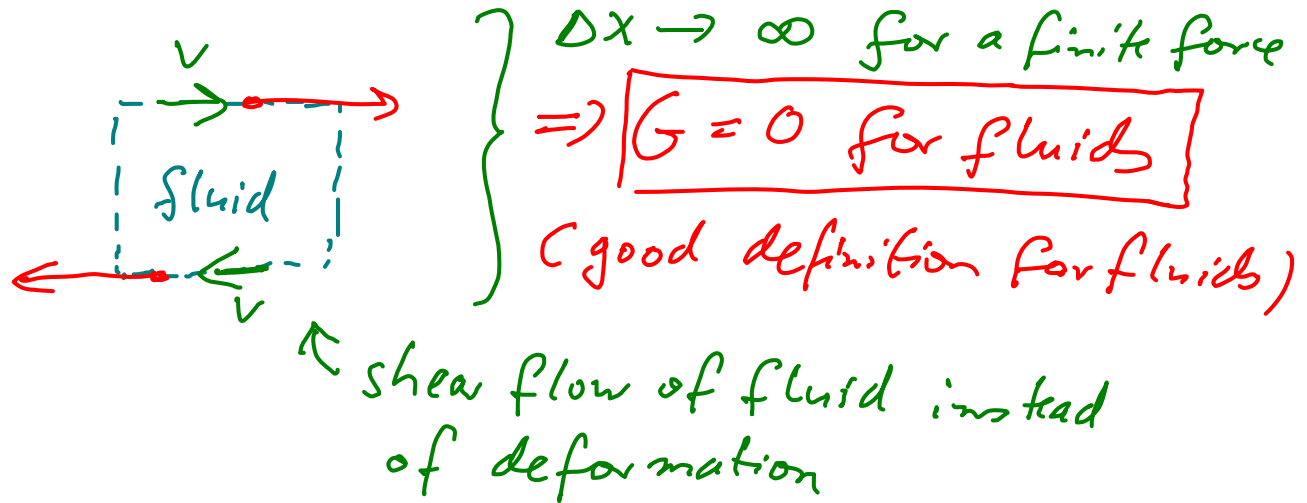 Δx → ∞ for a finite force
v
⇒ G = 0 for fluids
fluid
(good definition for fluids)
v
shear flow of fluid instead
of deformation